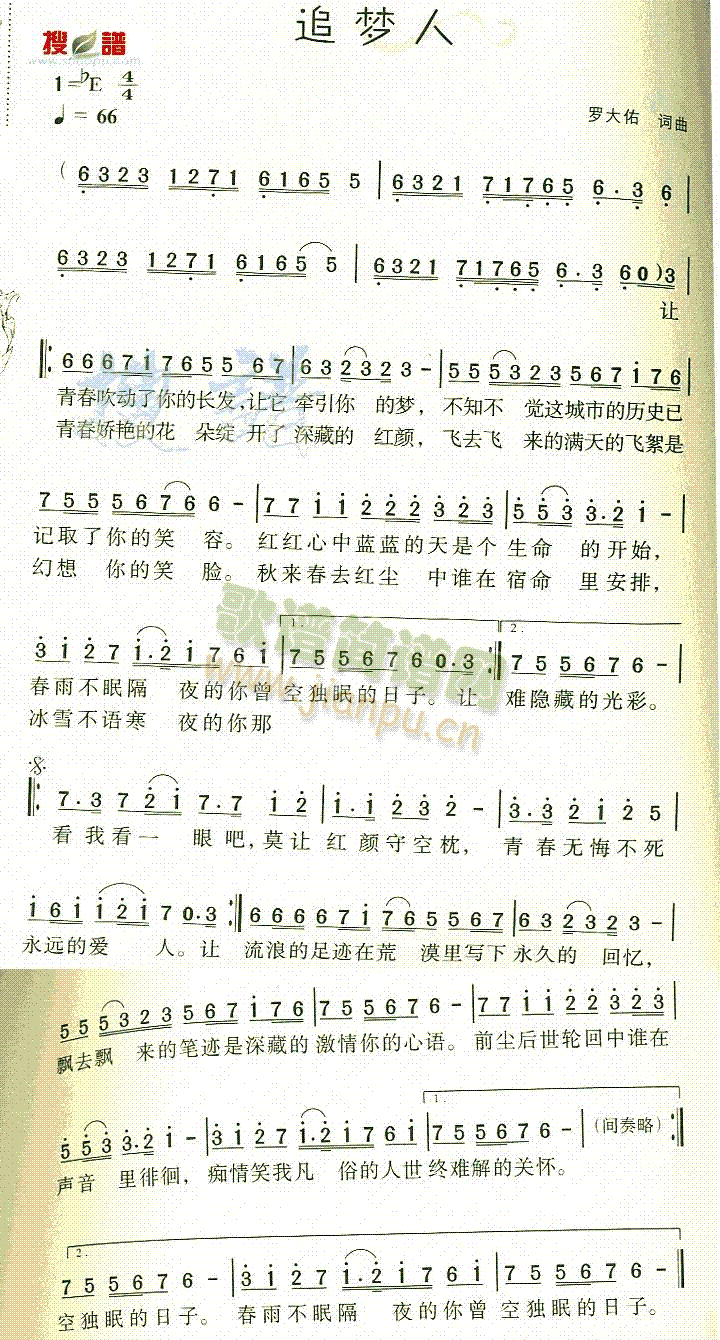 追梦人
搜谱
1=♭E 4/4
♩= 66
罗大佑 词曲
(6323 1271 6165 5 | 6321 71765 6·3 6 |
6323 1271 6165 5 | 6321 71765 6·3 60)3 |
让
‖: 66671765567 | 6323 23 - | 5553235671 76
青春吹动了你的长发,让它 牵引你 的梦, 不知不 觉这城市的历史已
青春娇艳的花 朵绽 开了 深藏的 红颜, 飞去飞 来的满天的飞絮是
7555676 6 - | 7711222323 | 5533·21 - |
记取了你的笑 容。 红红心中蓝蓝的天是个 生命 的开始,
幻想 你的笑 脸。 秋来春去红尘 中谁在 宿命 里安排,
31271·217 61 | 7 5 5 6 7 6 0·3 :‖ 7 5 5 6 7 6 - |
1.
2.
春雨不眠隔 夜的你曾 空独眠的日子。让 难隐藏的光彩。
冰雪不语寒 夜的你那
歌谱简谱网
www.jianpu.cn
‖: 7·3 7 21 7·7 12 | 1·1 232 - | 3·3 212 5 |
看我看一 眼吧,莫让 红颜守空枕, 青春无悔不死
161 121 7 0·3 :‖ 6666671765567 | 632323 - |
永远的爱 人。让 流浪的足迹在荒 漠里写下 永久的 回忆,
5553235 67176 | 755676 - | 7711223 23 |
飘去飘 来的笔迹是深藏的 激情你的心语。 前尘后世轮回中谁在
5533·21 - | 31271·21761 | 755676 - | (间奏略) :‖
1.
声音 里徘徊, 痴情笑我凡 俗的人世 终难解的关怀。
2.
755676 - | 31271·21761 | 755676 - ‖
空独眠的日子。 春雨不眠隔 夜的你曾 空独眠的日子。